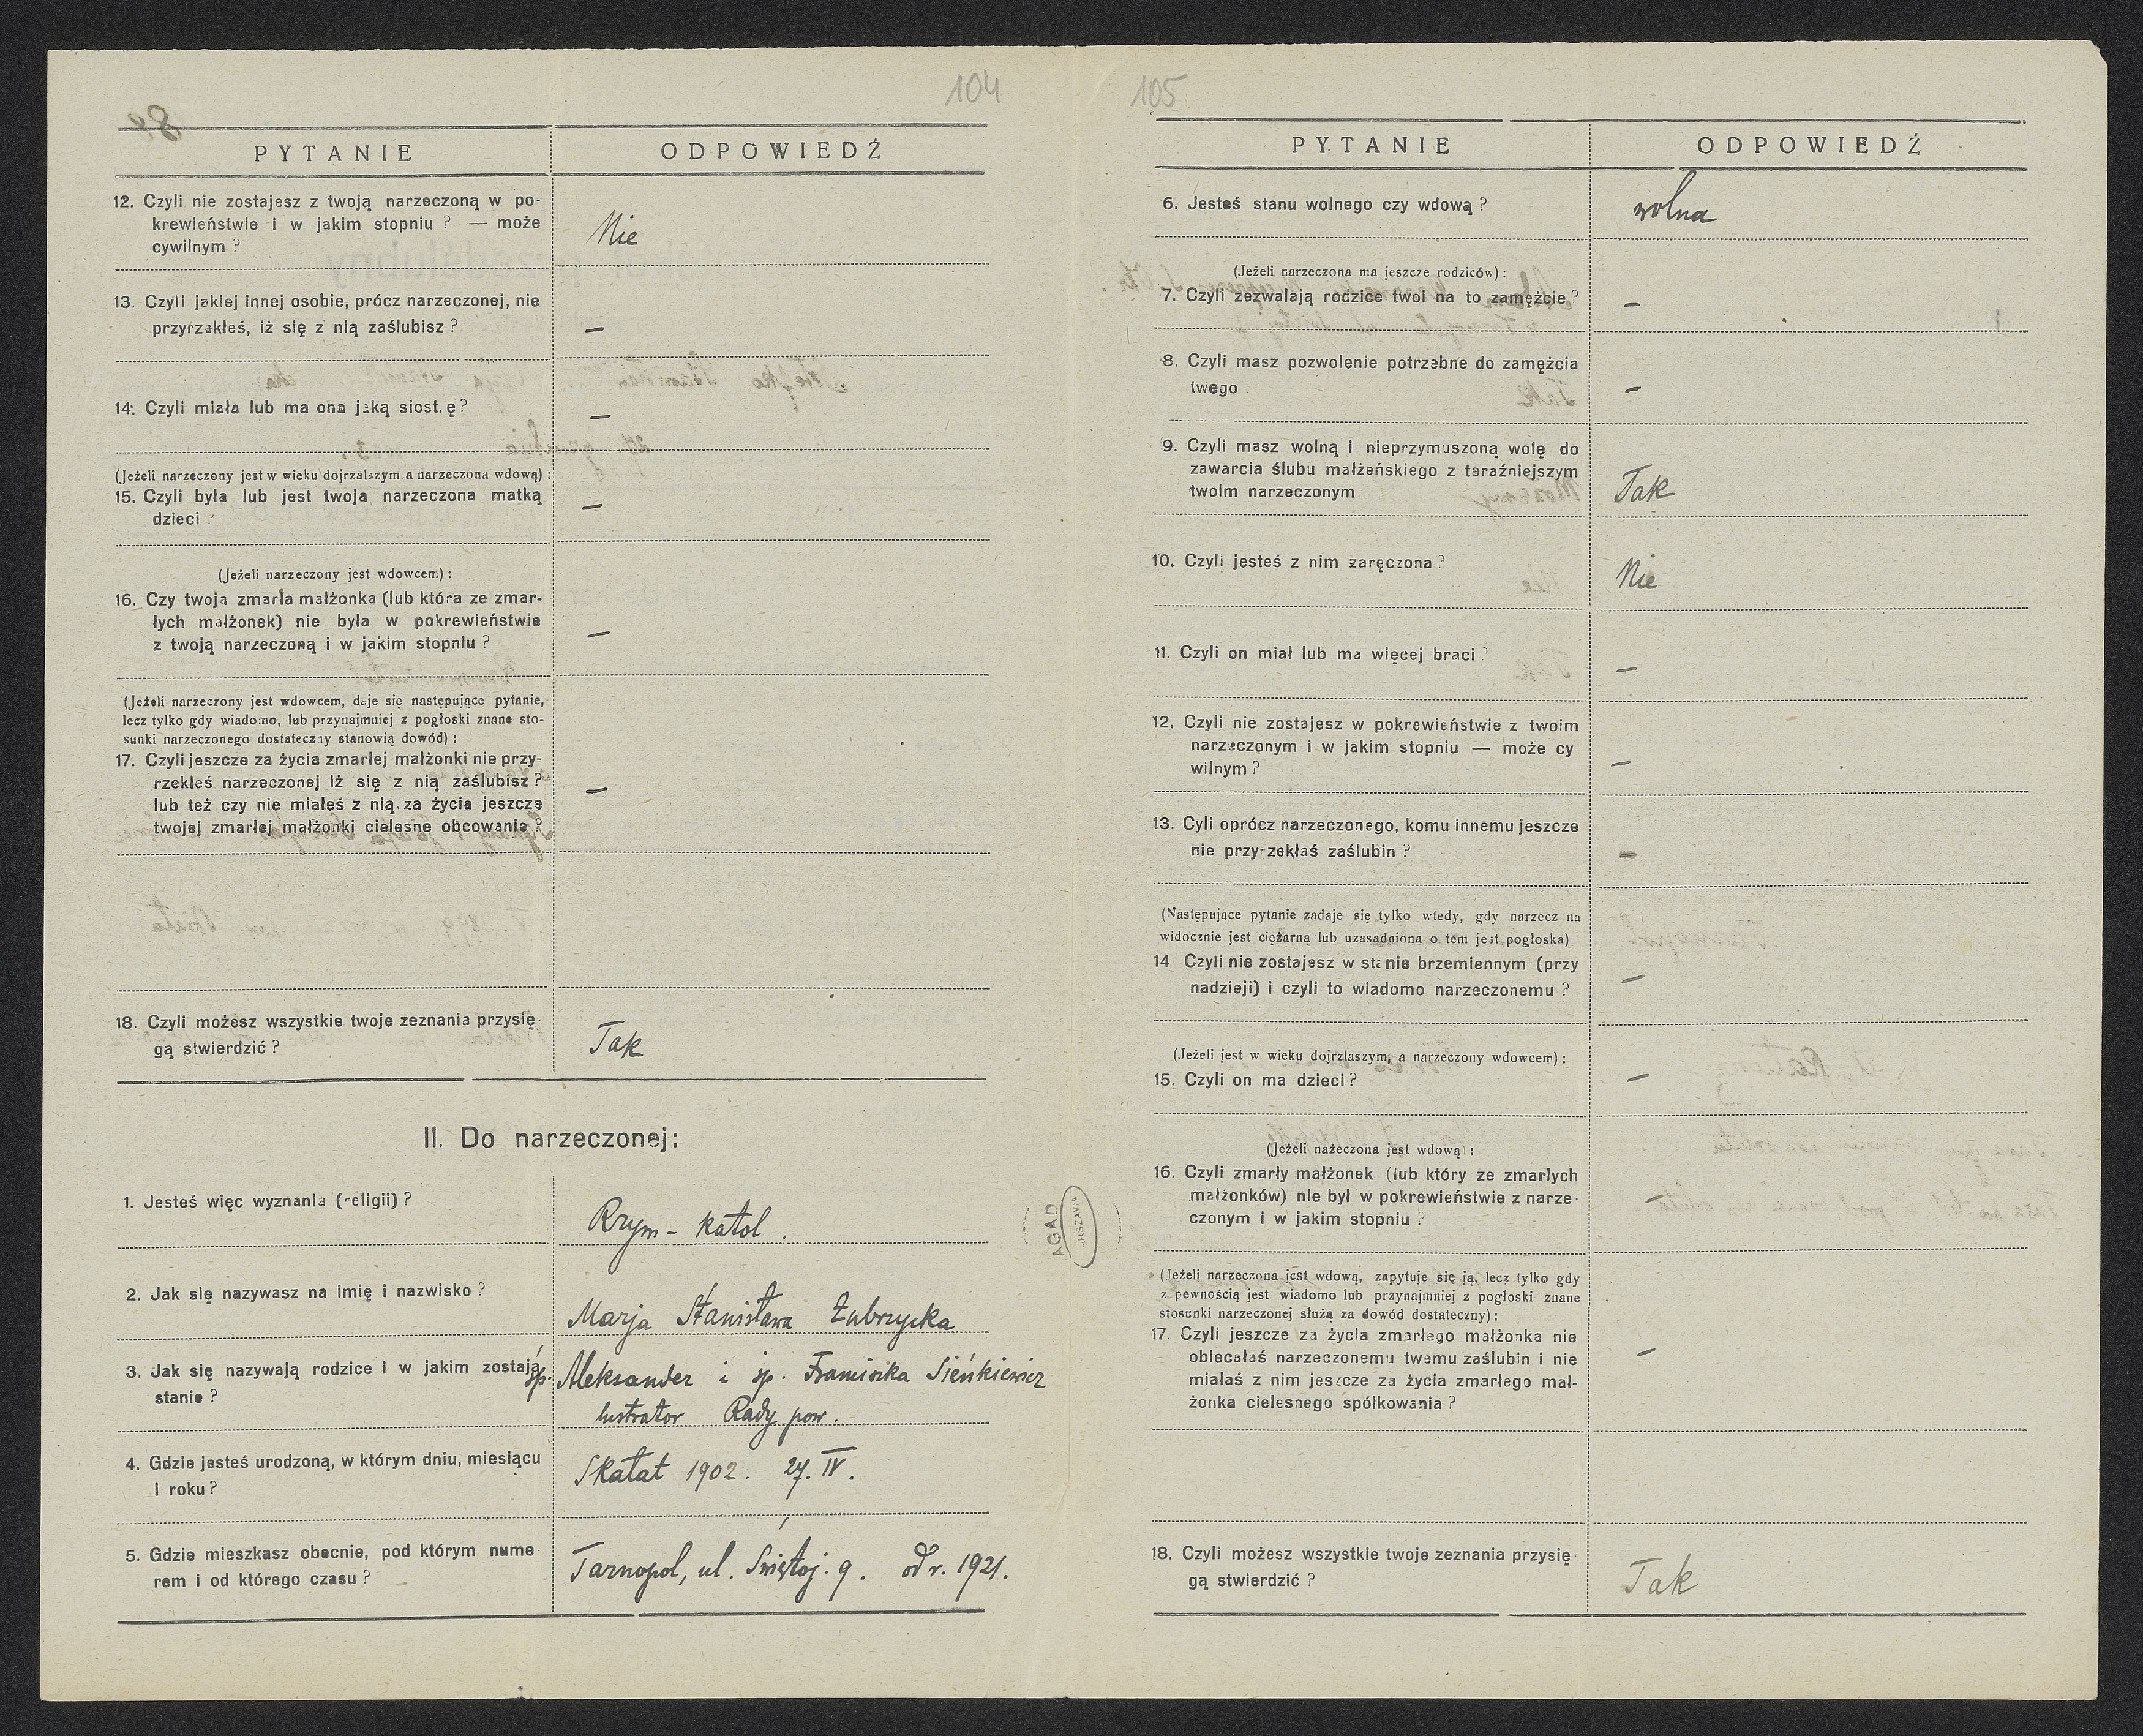 104
PYTANIE
ODPOWIEDŹ
12. Czyli nie zostajesz z twoją narzeczoną w po-
krewieństwie i w jakim stopniu ? — może
cywilnym ?
Nie
13. Czyli jakiej innej osobie, prócz narzeczonej, nie
przyrzekłeś, iż się z nią zaślubisz ?
—
14. Czyli miała lub ma ona jaką siostrę ?
—
(Jeżeli narzeczony jest w wieku dojrzalszym a narzeczona wdową) :
15. Czyli była lub jest twoja narzeczona matką
dzieci ?
—
(Jeżeli narzeczony jest wdowcem.) :
16. Czy twoja zmarła małżonka (lub która ze zmar-
łych małżonek) nie była w pokrewieństwie
z twoją narzeczoną i w jakim stopniu ?
—
(Jeżeli narzeczony jest wdowcem, daje się następujące pytanie,
lecz tylko gdy wiadomo, lub przynajmniej z pogłoski znane sto-
sunki narzeczonego dostateczny stanowią dowód) :
17. Czyli jeszcze za życia zmarłej małżonki nie przy-
rzekłeś narzeczonej iż się z nią zaślubisz ?
lub też czy nie miałeś z nią za życia jeszcze
twojej zmarłej małżonki cielesne obcowanie ?
—
18. Czyli możesz wszystkie twoje zeznania przysię-
gą stwierdzić ?
Tak
II. Do narzeczonej:
1. Jesteś więc wyznania (religii) ?
Rzym - katol.
2. Jak się nazywasz na imię i nazwisko ?
Marja Stanisława Zubrzycka
3. Jak się nazywają rodzice i w jakim zostają
stanie ?
śp. Aleksander i śp. Franciszka Sieńkiewicz
lustrator Rady pow.
4. Gdzie jesteś urodzoną, w którym dniu, miesiącu
i roku ?
Skałat 1902. 27. IV.
5. Gdzie mieszkasz obecnie, pod którym nume-
rem i od którego czasu ?
Tarnopol, ul. Świętoj. 9. od r. 1921.
AGAD
105
PYTANIE
ODPOWIEDŹ
6. Jesteś stanu wolnego czy wdową ?
wolna
(Jeżeli narzeczona ma jeszcze rodziców) :
7. Czyli zezwalają rodzice twoi na to zamężcie ?
—
8. Czyli masz pozwolenie potrzebne do zamężcia
twego
—
9. Czyli masz wolną i nieprzymuszoną wolę do
zawarcia ślubu małżeńskiego z teraźniejszym
twoim narzeczonym
Tak
10. Czyli jesteś z nim zaręczona ?
Nie
11. Czyli on miał lub ma więcej braci ?
—
12. Czyli nie zostajesz w pokrewieństwie z twoim
narzeczonym i w jakim stopniu — może cy
wilnym ?
—
13. Cyli oprócz narzeczonego, komu innemu jeszcze
nie przyrzekłaś zaślubin ?
—
(Następujące pytanie zadaje się tylko wtedy, gdy narzecz na
widocznie jest ciężarną lub uzasadniona o tem jest pogłoska)
14 Czyli nie zostajesz w stanie brzemiennym (przy
nadzieji) i czyli to wiadomo narzeczonemu ?
—
(Jeżeli jest w wieku dojrzlaszym, a narzeczony wdowcem) :
15. Czyli on ma dzieci ?
—
(Jeżeli nażeczona jest wdową) :
16. Czyli zmarły małżonek (lub który ze zmarłych
małżonków) nie był w pokrewieństwie z narze-
czonym i w jakim stopniu ?
—
(Jeżeli narzeczona jest wdową, zapytuje się ją, lecz tylko gdy
z pewnością jest wiadomo lub przynajmniej z pogłoski znane
stosunki narzeczonej służą za dowód dostateczny) :
17. Czyli jeszcze za życia zmarłego małżonka nie
obiecałaś narzeczonemu twemu zaślubin i nie
miałaś z nim jeszcze za życia zmarłego mał-
żonka cielesnego spółkowania ?
—
18. Czyli możesz wszystkie twoje zeznania przysię-
gą stwierdzić ?
Tak